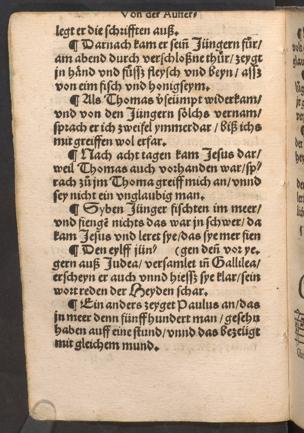 Von der Auffer⸗
legt er die schrifften auß.
¶ Darnach kam er seiñ Jüngern für/
am abend durch verschloßne thür/ zeygt
jn händ vnd füſſz fleysch vnd beyn/ aſſz
von eim fisch vnd honigseym.
¶ Als Thomas v̈seümpt widerkam/
vnd von den Jüngern sölchs vernam/
sprach er ich zweifel ymmerdar/ biß ichs
mit greiffen wol erfar.
¶ Nach acht tagen kam Jesus dar/
weil Thomas auch vorhanden war/sp⸗
rach zů jm Thoma greiff mich an/vnnd
sey nicht ein vnglaubig man.
¶ Syben Jünger fischten im meer/
vnd fiengẽ nichts das war jn schwer/ da
kam Jesus vnd leret sye/das sye jrer sien
¶ Den eylff jün⸗ (gen den̄ vor ye.
gern auß Judea/ versamlet iñ Gallilea/
erscheyn er auch vnnd hieſſz sye klar/sein
wort reden der Heyden schar.
¶ Ein anders zeyget Paulus an/das
jn meer denn fünffhundert man/ gesehn
haben auff eine stund/vnnd das bezeügt
mit gleichem mund.